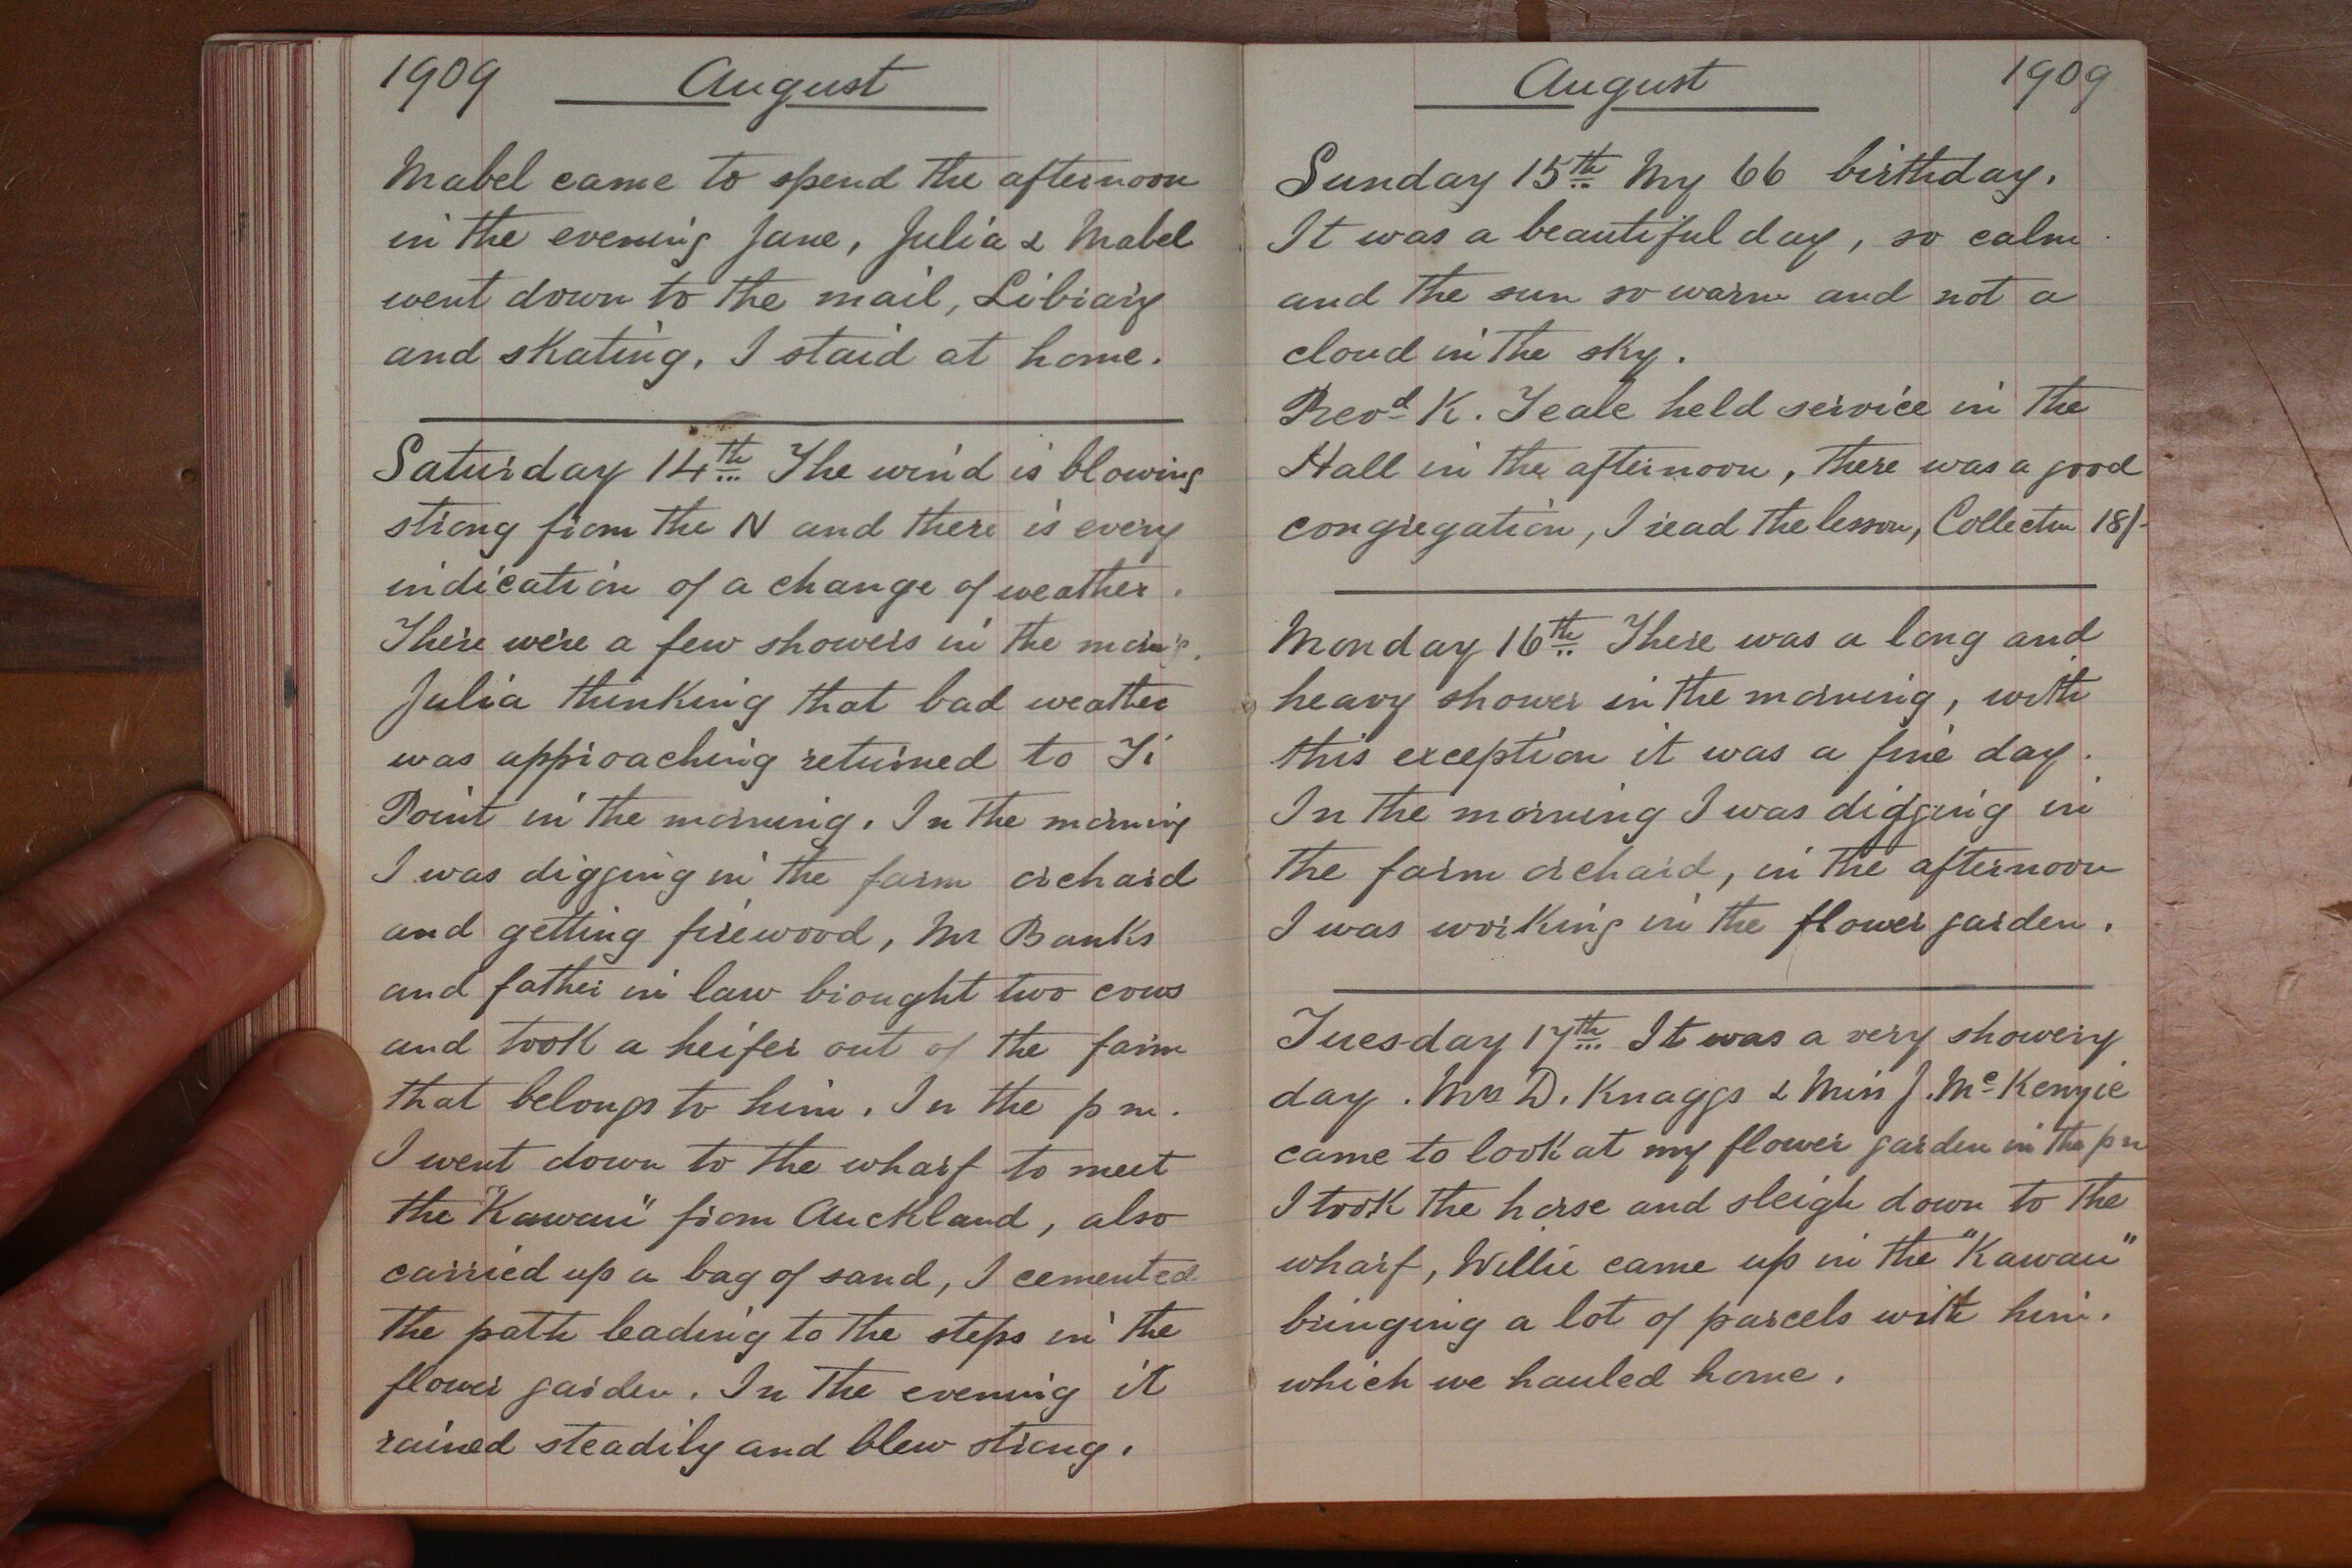 1909 August
Mabel came to spend the afternoon
in the evening Jane, Julia & Mabel
went down to the mail, Library
and skating. I staid at home.
Saturday 14th The wind is blowing
strong from the N and there is every
indication of a change of weather.
There were a few showers in the morn'g.
Julia thinking that bad weather
was approaching returned to Ti
Point in the morning. In the morning
I was digging in the farm orchard
and getting firewood, Mr Banks
and father in law brought two cows
and took a heifer out of the farm
that belongs to him. In the p m.
I went down to the wharf to meet
the "Kawau" from Auckland, also
carried up a bag of sand, I cemented
the path leading to the steps in the
flower garden. In the evening it
rained steadily and blew strong.
August 1909
Sunday 15th My 66 birthday.
It was a beautiful day, so calm
and the sun so warm and not a
cloud in the sky.
Revd K. Teale held service in the
Hall in the afternoon, there was a good
congregation, I read the lesson, Collectn 18/-
Monday 16th There was a long and
heavy shower in the morning, with
this exception it was a fine day.
In the morning I was digging in
the farm orchard, in the afternoon
I was working in the flower garden.
Tuesday 17th It was a very showery
day. Mrs D. Knaggs & Miss J. McKenzie
came to look at my flower garden in the pm
I took the horse and sleigh down to the
wharf, Willie came up in the "Kawau"
bringing a lot of parcels with him.
which we hauled home.